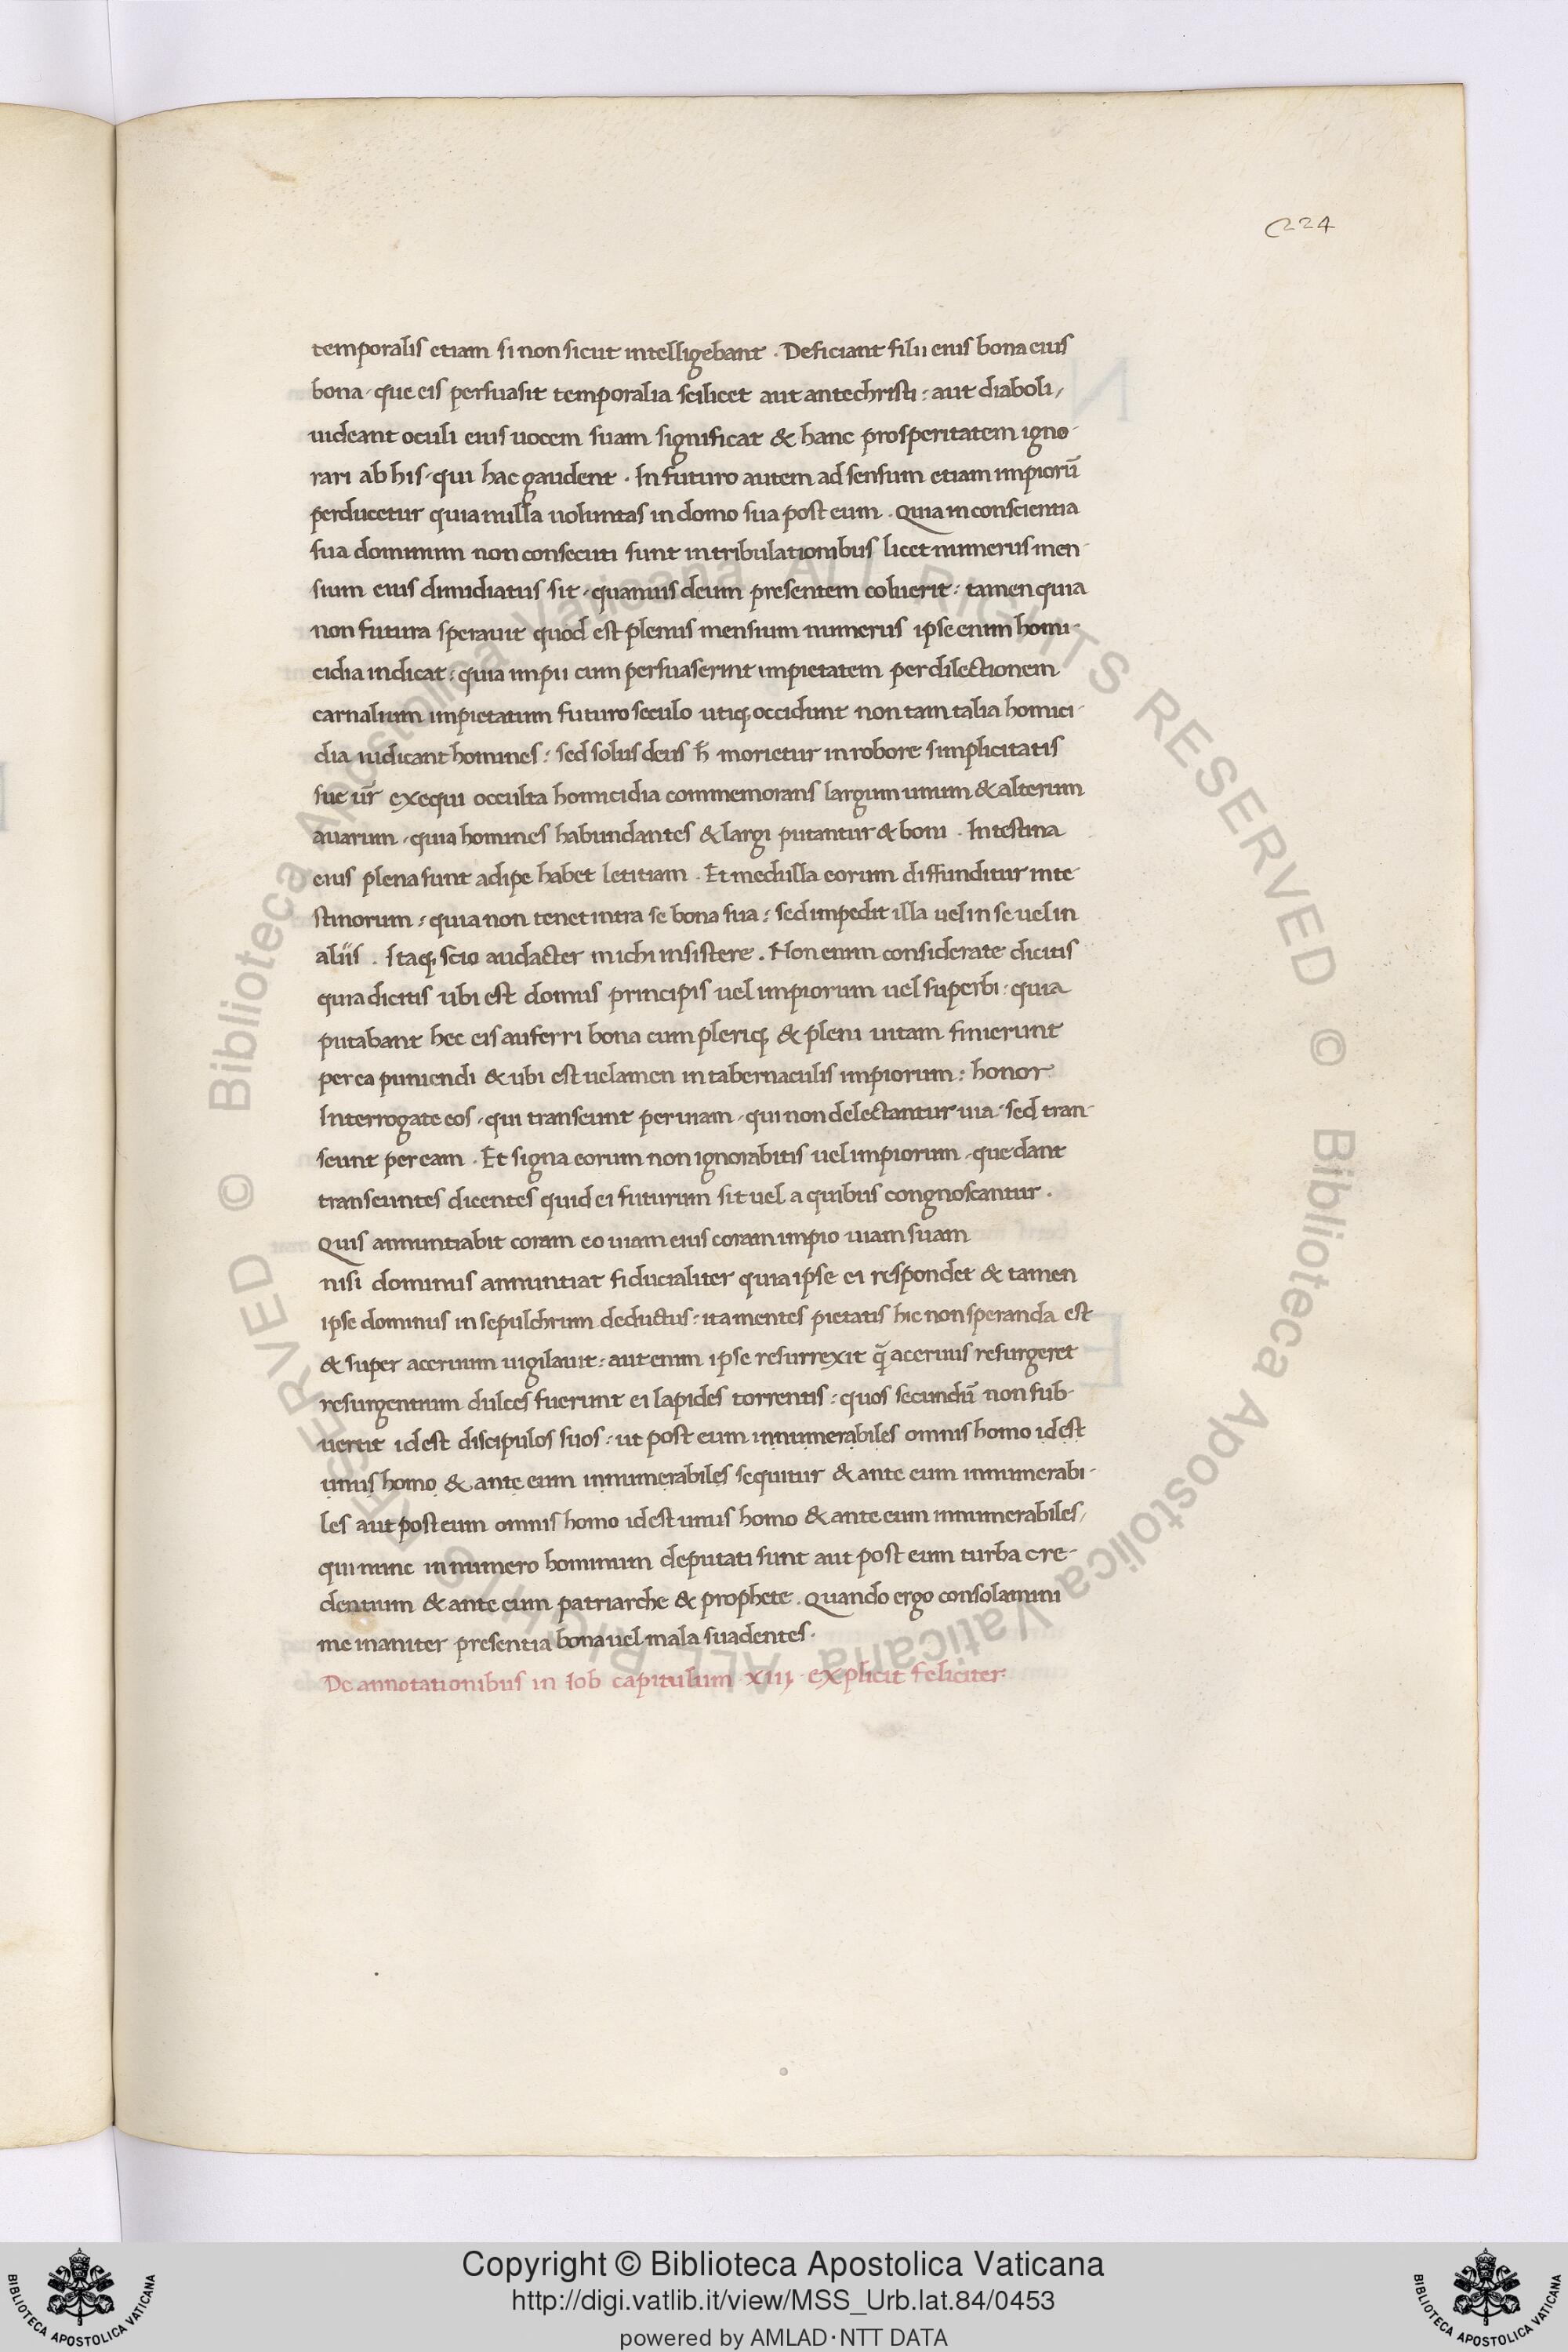 224
temporalis etiam si non sicut intelligebant . Deficiant filii eius bona eius
bona · que eis persuasit temporalia scilicet aut antechristi : aut diaboli /
uideant oculi eius uocem suam significat & hanc prosperitatem igno-
rari ab his · qui hac gaudent . In futuro autem ad sensum etiam impiorū
perducetur quia nulla uoluntas in domo sua post eum . Quia in conscientia
sua dominum non consecuti sunt in tribulationibus licet numerus men-
sium eius dimidiatus sit · quamuis deum presentem coluerit : tamen quia
non futura sperauit quod est plenus mensium numerus ipse enim homi-
cidia iudicat : quia impii cum persuaserint impietatem per dilectionem
carnalium impietatum futuro seculo utiqꝫ occidunt non tam talia homici-
dia iudicant homines : sed solus deus h̄ morietur in robore simplicitatis
sue ur̄ exequi occulta homicidia commemorans largum unum & alterum
auarum · quia homines habundantes & largi putantur & boni . Intestina
eius plena sunt adipe habet letitiam . Et medulla eorum diffunditur inte-
stinorum : quia non tenet intra se bona sua : sed impedit illa uel in se uel in
aliis . Itaqꝫ scio audacter michi insistere . Non enim considerate dicitis
quia dicitis ubi est domus principis uel impiorum uel superbi : quia
putabant hec eis auferri bona cum pleriqꝫ & pleni uitam finierunt
per ea puniendi & ubi est uelamen in tabernaculis impiorum : honor
Interrogate eos · qui transeunt per uiam · qui non delectantur uia · sed tran-
seunt per eam . Et signa eorum non ignorabitis uel impiorum · que dant
transeuntes dicentes quid ei futurum sit uel a quibus congnoscantur .
Quis annuntiabit coram eo uiam eius coram impio uiam suam
nisi dominus annuntiat fiducialiter quia ipse ei respondet & tamen
ipse dominus in sepulchrum deductus : ita mentes pietatis hic non speranda est
& super aceruum uigilauit : aut enim ipse resurrexit q̄ aceruus resurgeret
resurgentium dulces fuerunt ei lapides torrentis : quos secundū non sub-
uertit id est discipulos suos : ut post eum innumerabiles omnis homo id est
unus homo & ante eum innumerabiles sequitur & ante eum innumerabi-
les aut post eum omnis homo id est unus homo & ante eum innumerabiles /
qui nunc in numero hominum deputati sunt aut post eum turba cre-
dentium & ante eum patriarche & prophete . Quando ergo consolamini
me inaniter presentia bona uel mala suadentes .
De annotationibus in Iob capitulum XIII explicit feliciter.
© Biblioteca Apostolica Vaticana ALL RIGHTS RESERVED
© Biblioteca Apostolica Vaticana ALL RIGHTS RESERVED
Copyright © Biblioteca Apostolica Vaticana
http://digi.vatlib.it/view/MSS_Urb.lat.84/0453
powered by AMLAD·NTT DATA
BIBLIOTECA APOSTOLICA VATICANA
BIBLIOTECA APOSTOLICA VATICANA